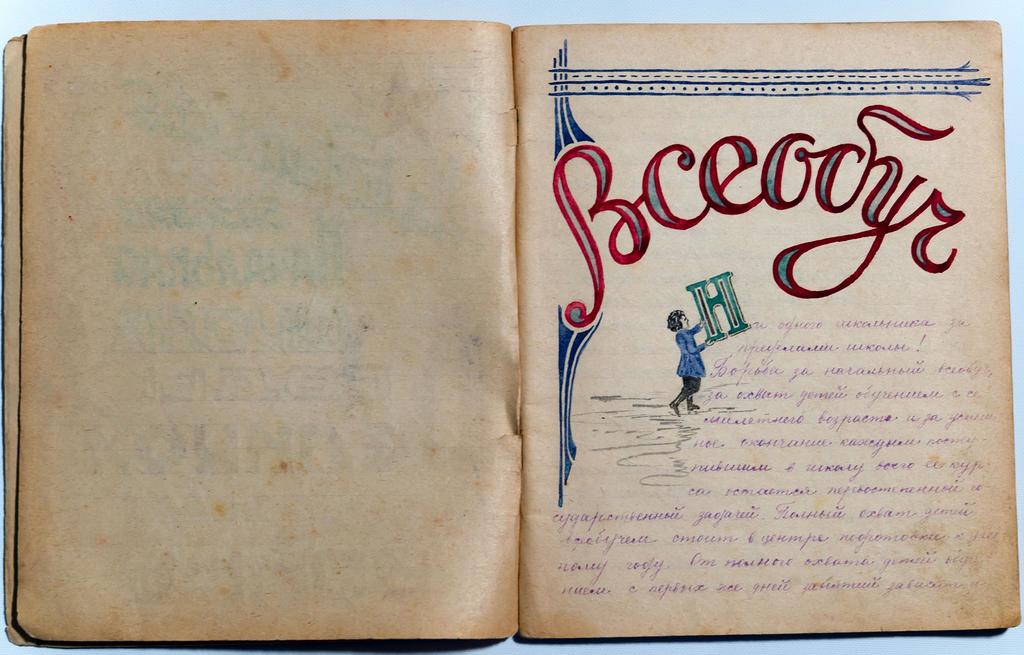 Всеобуч
Ни одного школьника за
пределами школы!
Борьба за начальный всеобуч,
за охват детей обучением с се
милетнего возраста и за успеш
ное окончание каждым посту-
пившим в школу всего ее кур-
са остается первостепенной го
сударственной задачей. Полный охват детей
всеобучем стоит в центре подготовки к учеб
ному году. От полного охвата детей
нием с первых же дней занятий зависит